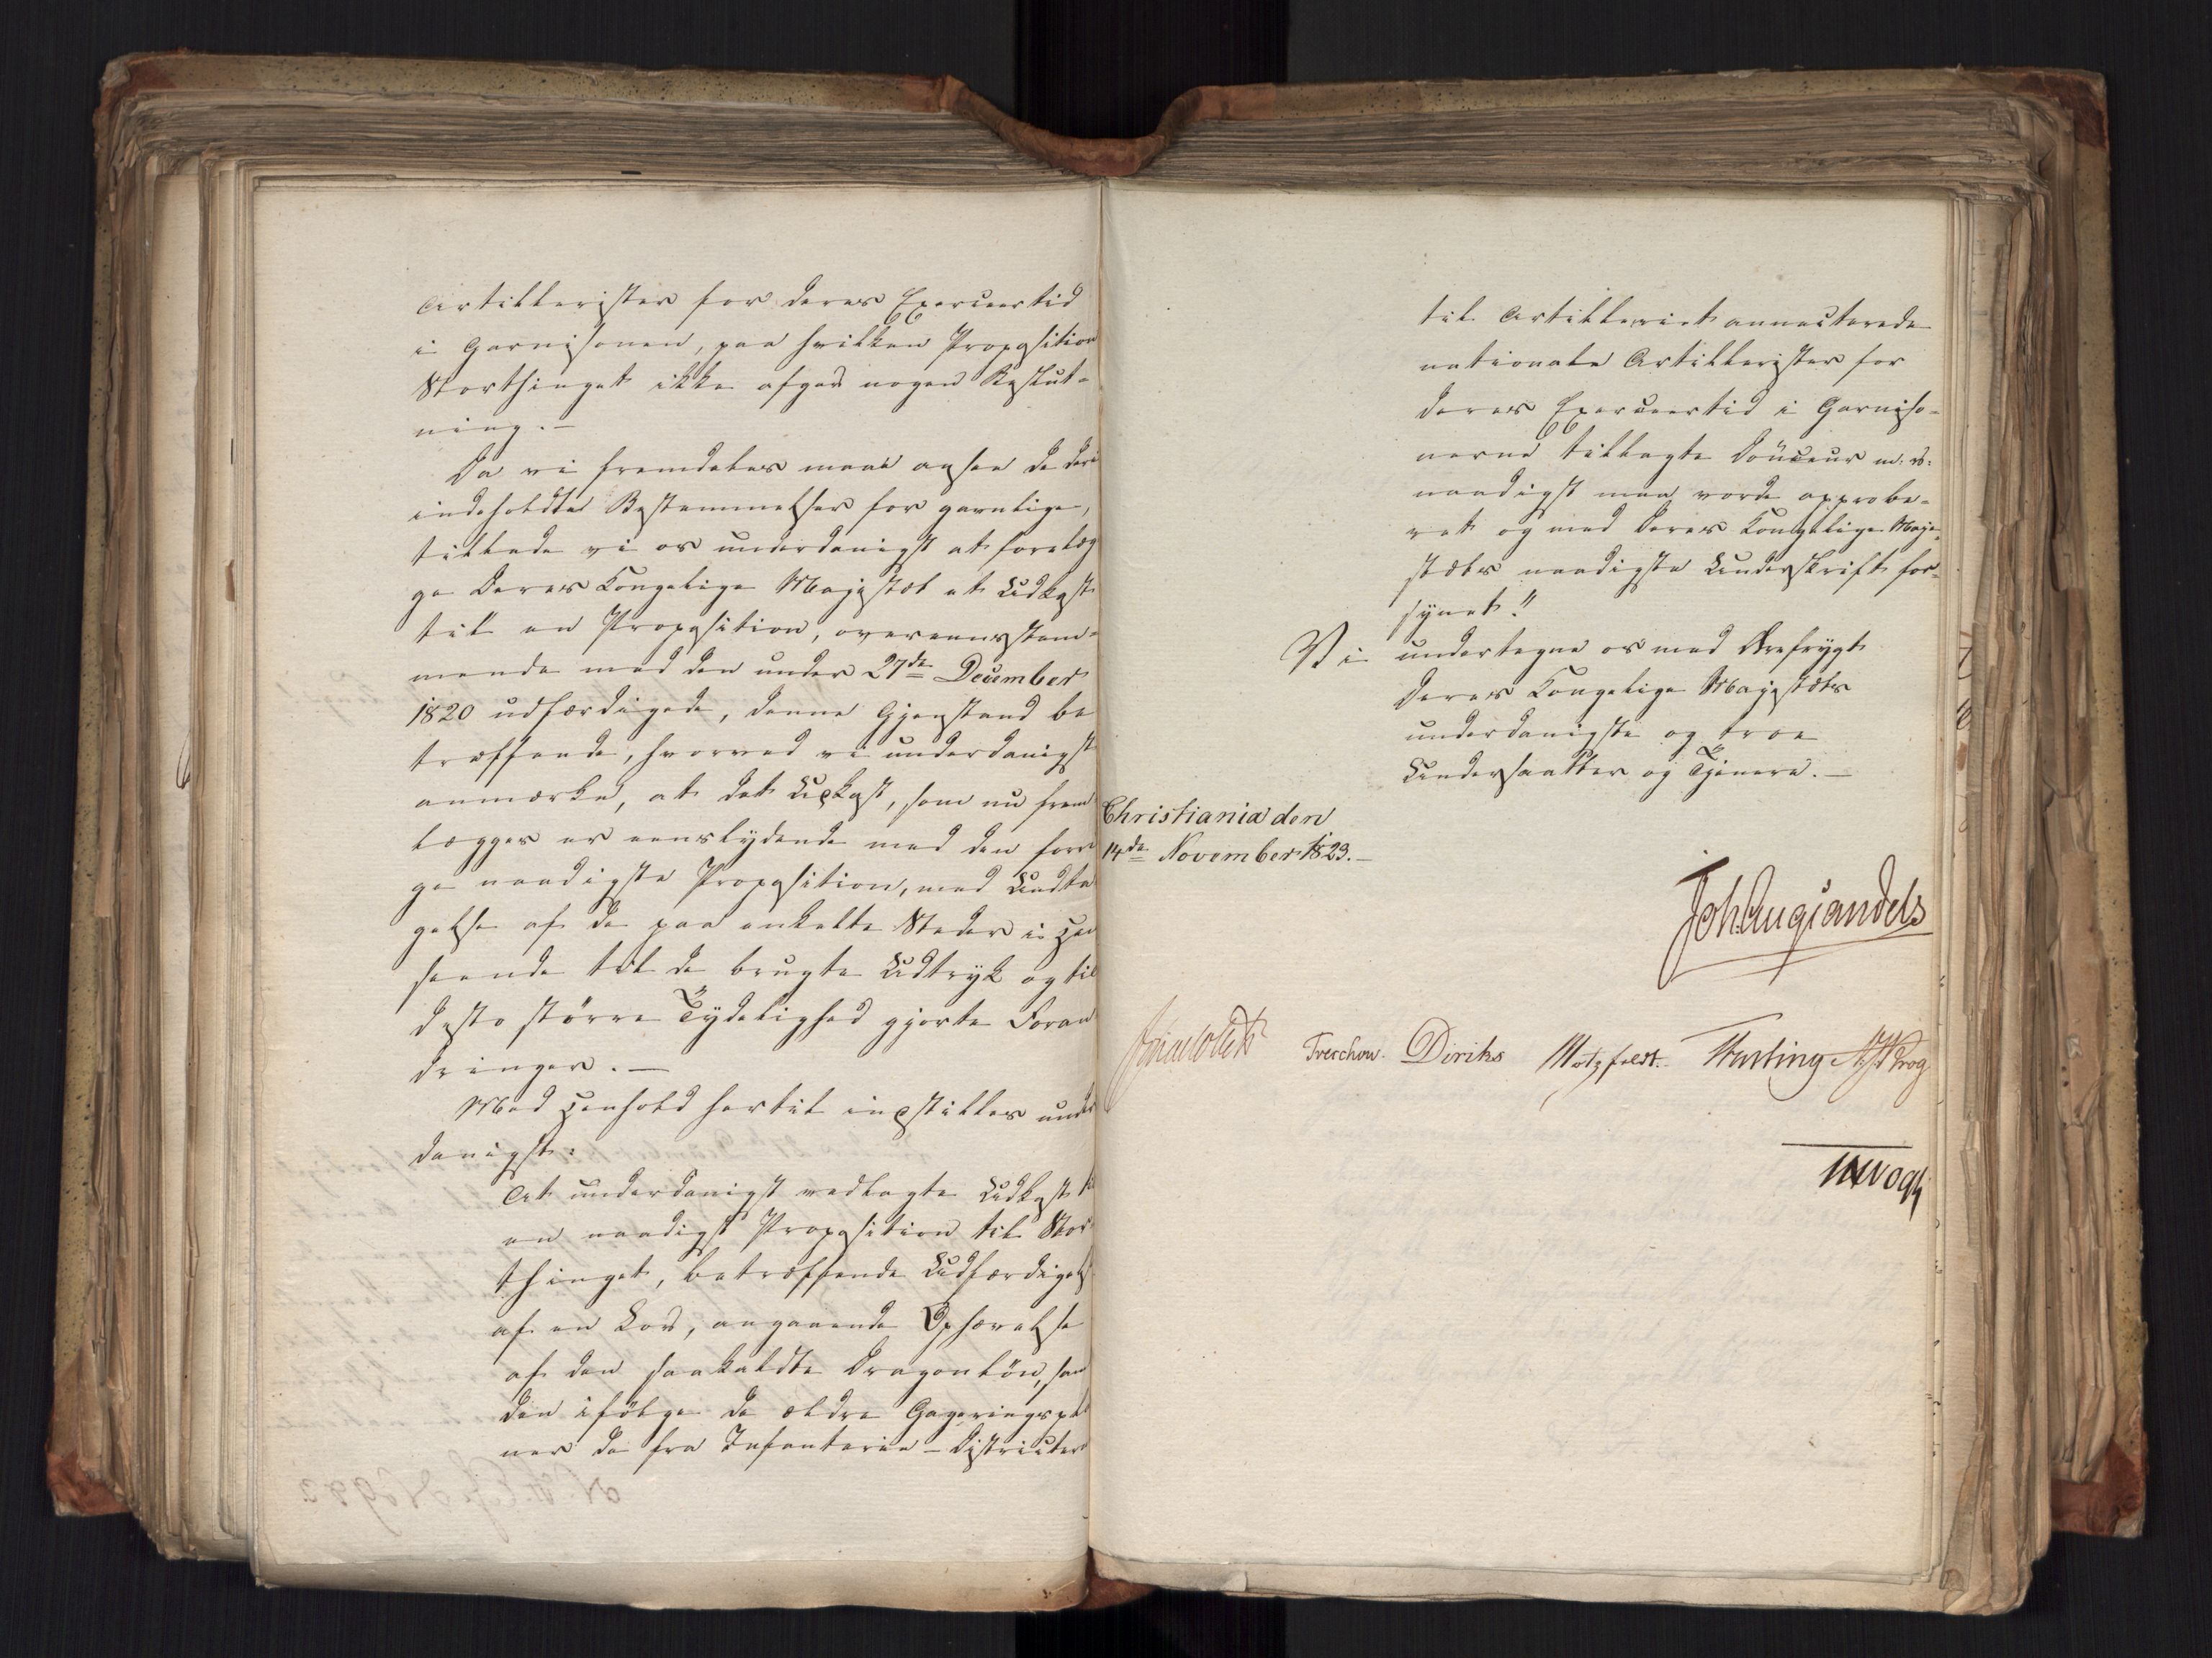 Artillerister for deres Exerceertid
i Garnisonen, paa hvilken Proposition
Storthinget ikke afgav nogen Beslut-
ning. —
Da vi fremdeles maae ansee de deri
indeholdte Bestemmelser for gavnlige,
tillade vi os underdanigst at forelæg
ge Deres Kongelige Majestæt et Udkast
til en Proposition, overeensstem-
mende med den under 27de December
1820 udfærdigede, denne Gjenstand be
træffende, hvorved vi underdanigst
anmærke, at det Udkast, som nu frem
lægges er eenslydende med den forri
ge naadigste Proposition, med Undta
gelse af de paa enkelte Steder i Hen
seende til de brugte Udtryk og til
desto större Tydelighed gjorte Foran
dringer. —
Med Henhold hertil indstilles under
danigst:
At underdanigst vedlagte Udkast til
en naadigst Proposition til Stor
thinget, betræffende Udfærdigelse
af en Lov, angaaende Ophævelse
af den saakaldte Dragonlön, sam
den ifölge de ældre Gageringspla
ner de fra Infanterie-Districter
til Artilleriet annecterede
nationale Artillerister for
deres Exerceertid i Garniso-
nerne tillagte Douceur m. v.
naadigst maa vorde approbe-
ret og med Deres Kongelige Maje-
stæts naadigste Underskrift for-
synet!"
Vi undertegne os med Ærefrygt
Deres Kongelige Majestæts
underdanigste og troe
Undersaatter og Tjenere. —
Christiania den
14de November 1823. —
Joh Aug Sandels
Treschow. Diriks Motzfeldt. Fasting Krog
Vogt